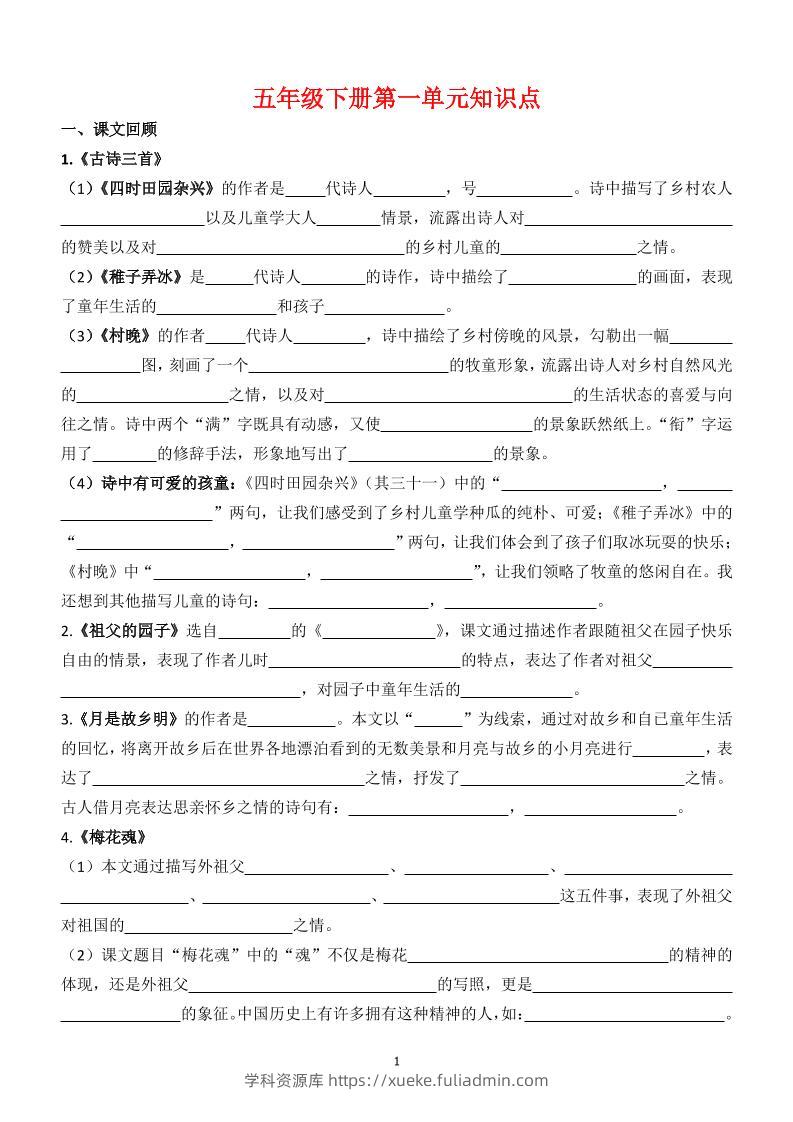 五年级下册第一单元知识点
一、课文回顾
1.《古诗三首》
（1）《四时田园杂兴》的作者是_____代诗人_________，号____________。诗中描写了乡村农人
__________________以及儿童学大人________情景，流露出诗人对__________________________
的赞美以及对_______________________________的乡村儿童的_________________之情。
（2）《稚子弄冰》是______代诗人________的诗作，诗中描绘了________________的画面，表现
了童年生活的_______________和孩子_______________。
（3）《村晚》的作者_____代诗人_________，诗中描绘了乡村傍晚的风景，勾勒出一幅________
__________图，刻画了一个_________________________的牧童形象，流露出诗人对乡村自然风光
的___________________之情，以及对_______________________________的生活状态的喜爱与向
往之情。诗中两个“满”字既具有动感，又使___________________的景象跃然纸上。“衔”字运
用了________的修辞手法，形象地写出了__________________的景象。
（4）诗中有可爱的孩童：《四时田园杂兴》（其三十一）中的“____________________，_______
___________________”两句，让我们感受到了乡村儿童学种瓜的纯朴、可爱；《稚子弄冰》中的
“___________________，___________________”两句，让我们体会到了孩子们取冰玩耍的快乐；
《村晚》中“___________________，___________________”，让我们领略了牧童的悠闲自在。我
还想到其他描写儿童的诗句：____________________，___________________。
2.《祖父的园子》选自_________的《______________》，课文通过描述作者跟随祖父在园子快乐
自由的情景，表现了作者儿时________________________的特点，表达了作者对祖父__________
______________________________，对园子中童年生活的______________。
3.《月是故乡明》的作者是___________。本文以“______”为线索，通过对故乡和自己童年生活
的回忆，将离开故乡后在世界各地漂泊看到的无数美景和月亮与故乡的小月亮进行_________，表
达了__________________________________之情，抒发了____________________________之情。
古人借月亮表达思亲怀乡之情的诗句有：____________________，___________________。
4.《梅花魂》
（1）本文通过描写外祖父__________________、__________________、_____________________
________________、_____________________、______________________这五件事，表现了外祖父
对祖国的_____________________之情。
（2）课文题目“梅花魂”中的“魂”不仅是梅花_________________________________的精神的
体现，还是外祖父_______________________________的写照，更是_________________________
_______________的象征。中国历史上有许多拥有这种精神的人，如：_________________________。
1
学科资源库 https://xueke.fuliadmin.com